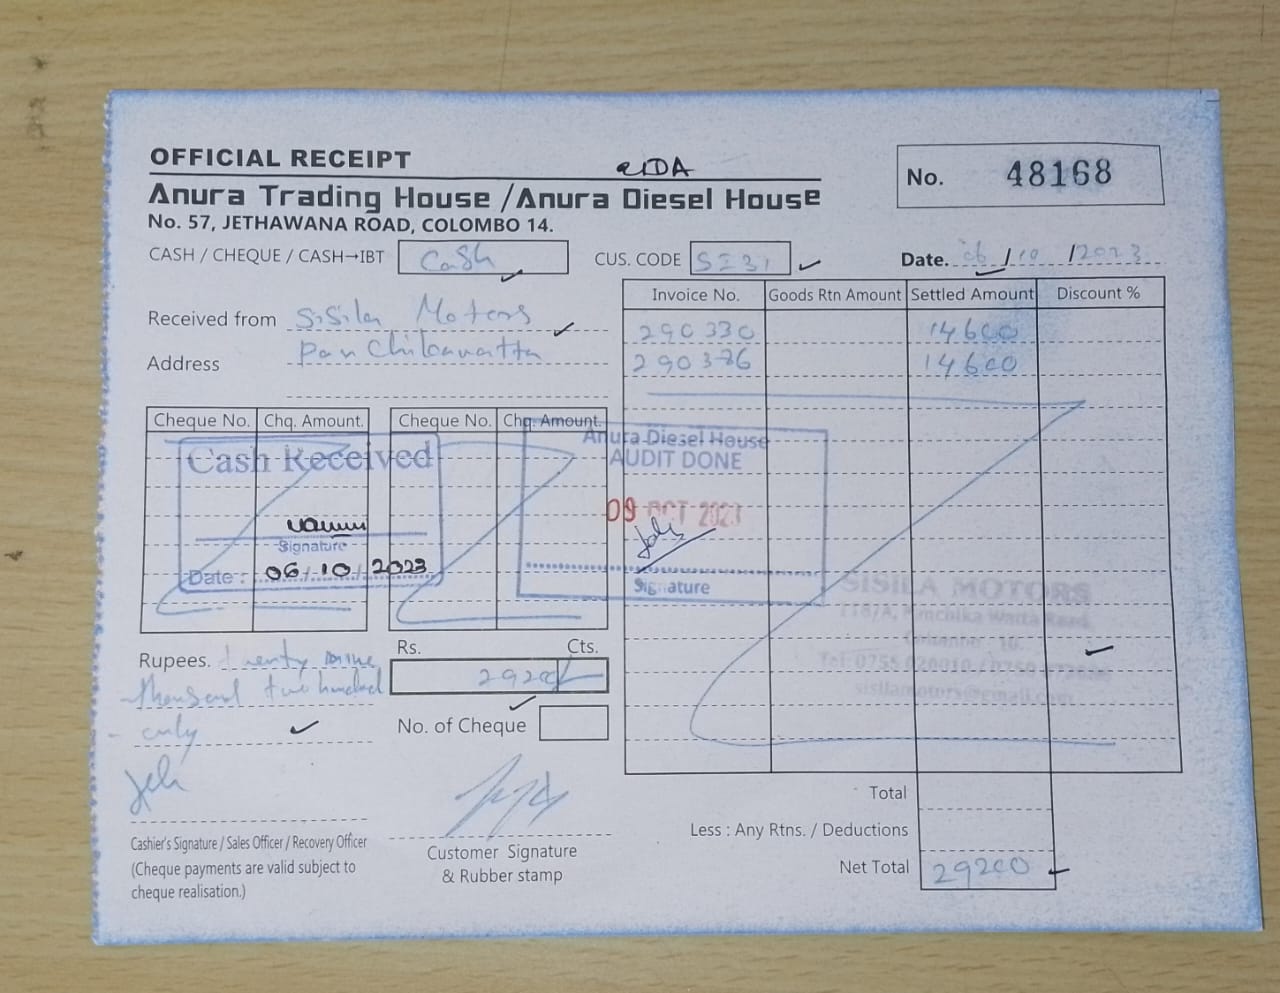 OFFICIAL RECEIPT
Anura Trading House / Anura Diesel House
No. 57, JETHAWANA ROAD, COLOMBO 14.
No. 48168
CASH / CHEQUE / CASH→IBT Cash
CUS. CODE SI31
Date. 06/10/2023
Received from Sisila Motors
Address Panchikawatta
Invoice No. Goods Rtn Amount Settled Amount Discount %
290330 14600
290376 14600
Cheque No. Chq. Amount. Cheque No. Chq. Amount.
Cash Received
Signature
Date : 06/10/2023
Anura Diesel House
AUDIT DONE
09 OCT 2023
Signature
SISILA MOTORS
118/A, Panchika Watta Road,
Colombo 10.
sisilamotors@gmail.com
Rupees. twenty nine
thousand two hundred
only
Rs. Cts.
29200/
No. of Cheque
Cashier's Signature / Sales Officer / Recovery Officer
(Cheque payments are valid subject to
cheque realisation.)
Customer Signature
& Rubber stamp
Total
Less : Any Rtns. / Deductions
Net Total 29200